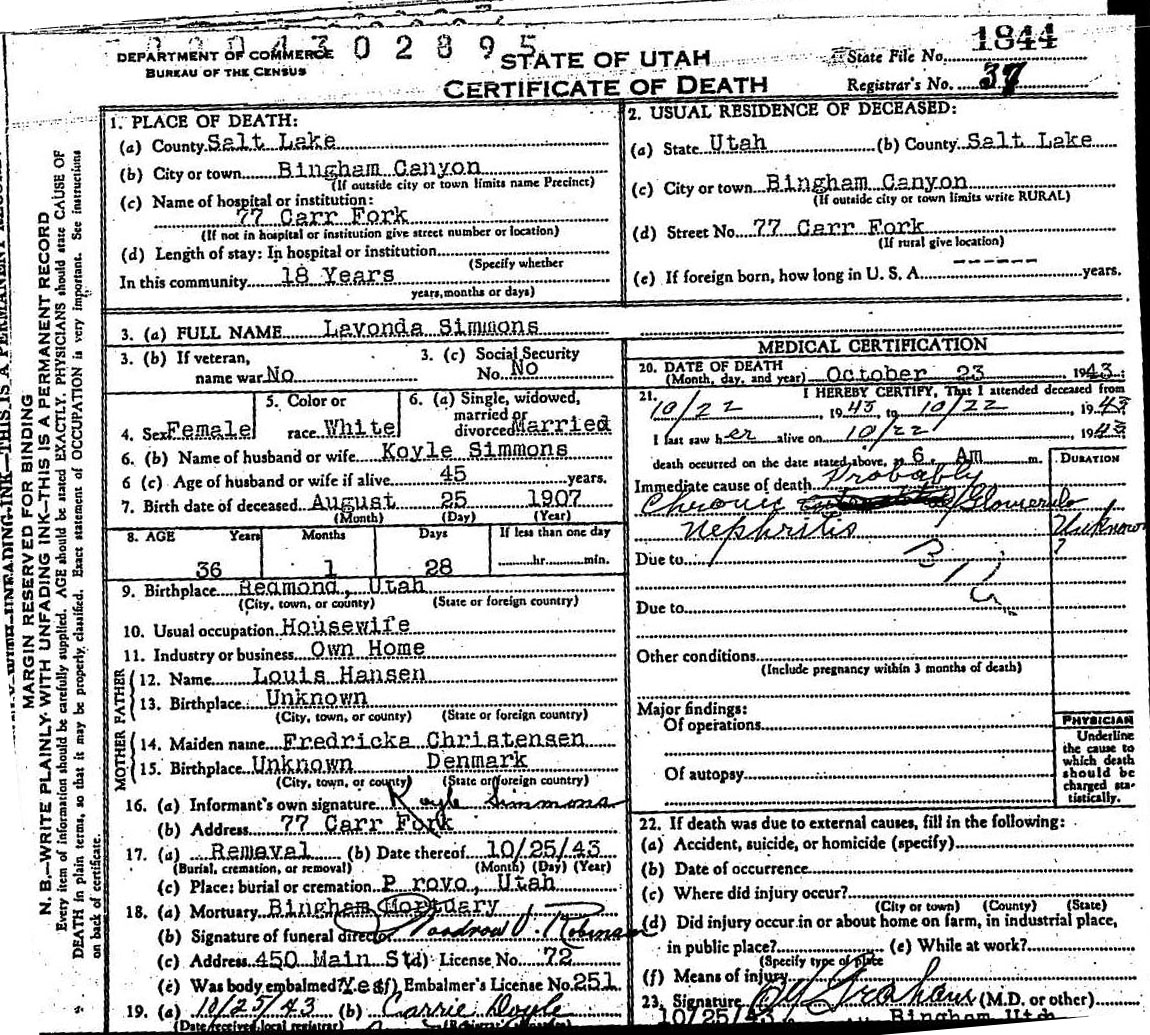 1204302895
DEPARTMENT OF COMMERCE
BUREAU OF THE CENSUS
STATE OF UTAH
CERTIFICATE OF DEATH
State File No. 1844
Registrar's No. 37
MARGIN RESERVED FOR BINDING
N. B.—WRITE PLAINLY WITH UNFADING INK—THIS IS A PERMANENT RECORD
Every item of information should be carefully supplied. AGE should be stated EXACTLY. PHYSICIANS should state CAUSE OF
DEATH in plain terms, so that it may be properly classified. Exact statement of OCCUPATION is very important. See instructions
on back of certificate.
1. PLACE OF DEATH:
(a) County Salt Lake
(b) City or town Bingham Canyon
(If outside city or town limits name Precinct)
(c) Name of hospital or institution:
77 Carr Fork
(If not in hospital or institution give street number or location)
(d) Length of stay: In hospital or institution
(Specify whether
In this community 18 Years
years, months or days)
2. USUAL RESIDENCE OF DECEASED:
(a) State Utah (b) County Salt Lake
(c) City or town Bingham Canyon
(If outside city or town limits write RURAL)
(d) Street No. 77 Carr Fork
(If rural give location)
(e) If foreign born, how long in U. S. A. ------ years.
3. (a) FULL NAME Lavonda Simmons
3. (b) If veteran, name war No
3. (c) Social Security No. No
4. Sex Female
5. Color or race White
6. (a) Single, widowed, married or divorced Married
6. (b) Name of husband or wife Koyle Simmons
6 (c) Age of husband or wife if alive 45 years.
7. Birth date of deceased August 25 1907
(Month) (Day) (Year)
8. AGE Years Months Days If less than one day
36 1 28 hr. min.
9. Birthplace Redmond, Utah
(City, town, or county) (State or foreign country)
10. Usual occupation Housewife
11. Industry or business Own Home
FATHER
12. Name Louis Hansen
13. Birthplace Unknown
(City, town, or county) (State or foreign country)
MOTHER
14. Maiden name Fredricka Christensen
15. Birthplace Unknown Denmark
(City, town, or county) (State or foreign country)
16. (a) Informant's own signature Koyle Simmons
(b) Address 77 Carr Fork
17. (a) Removal (b) Date thereof 10/25/43
(Burial, cremation, or removal) (Month) (Day) (Year)
(c) Place: burial or cremation P rovo, Utah
18. (a) Mortuary Bingham Mortuary
(b) Signature of funeral director Woodrow V. Robinson
(c) Address 450 Main St (d) License No. 72
(e) Was body embalmed? Yes (f) Embalmer's License No. 251
19. (a) 10/25/43 (b) Carrie Doyle
(Date received local registrar)
MEDICAL CERTIFICATION
20. DATE OF DEATH
(Month, day, and year) October 23 1943
21. I HEREBY CERTIFY, That I attended deceased from
10/22 1943 to 10/22 1943
I last saw her alive on 10/22 1943
death occurred on the date stated above, 6. Am m.
DURATION
Immediate cause of death Probably
Chronic Glomerulo
nephritis Unknown
?
Due to
Due to
Other conditions
(Include pregnancy within 3 months of death)
Major findings:
Of operations
Of autopsy
PHYSICIAN
Underline
the cause to
which death
should be
charged sta-
tistically.
22. If death was due to external causes, fill in the following:
(a) Accident, suicide, or homicide (specify)
(b) Date of occurrence
(c) Where did injury occur?
(City or town) (County) (State)
(d) Did injury occur in or about home on farm, in industrial place,
in public place? (e) While at work?
(Specify type of place
(f) Means of injury
23. Signature Graham (M.D. or other)
10/25/43 Bingham Utah